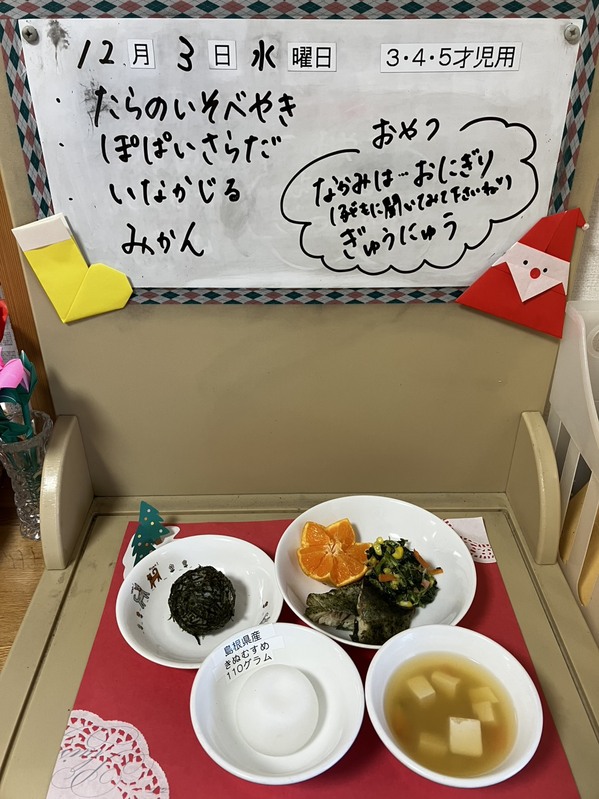 12月3日水曜日 3・4・5才児用
・たらのいそべやき
・ぽぱいさらだ
・いなかじる
みかん
おやつ
なかみは…おにぎり
(子どもに聞いてみて下さいね♪)
ぎゅうにゅう
島根県産
きぬむすめ
110グラム